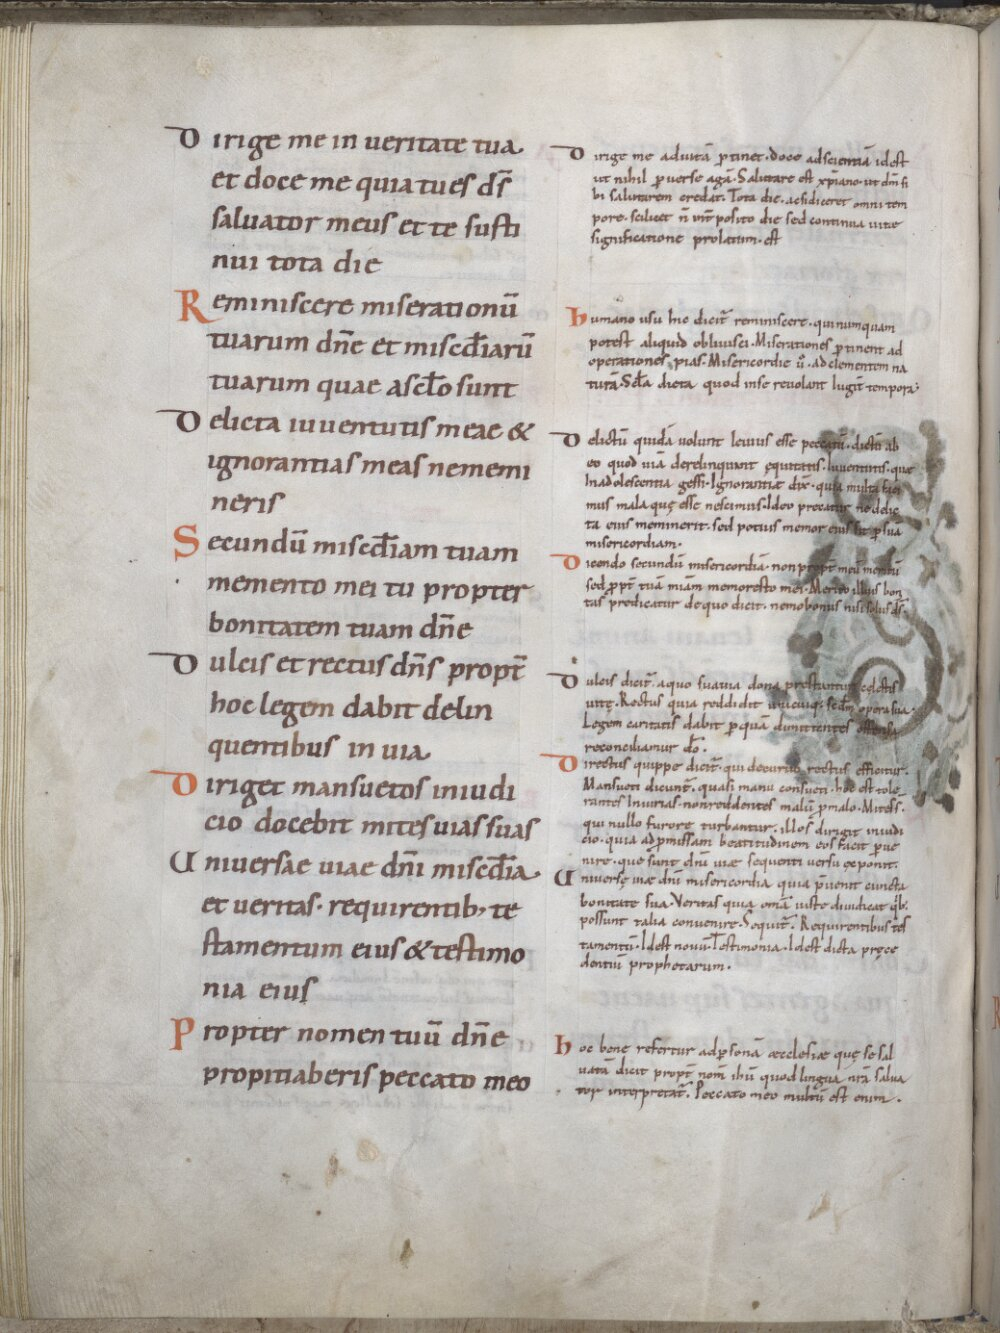 Dirige me in veritate tua
et doce me quia tu es d̄s
salvator meus et te susti
nui tota die
Reminiscere miserationū
tuarum dn̄e et misēdiarū
tuarum quae a sclo sunt
Delicta iuventutis meae &
ignorantias meas ne memi
neris
Secundū misēdiam tuam
memento mei tu propter
bonitatem tuam dn̄e
Dulcis et rectus dn̄s propt̄
hoc legem dabit delin
quentibus in via
Diriget mansuetos in iudi
cio docebit mites vias suas
Universae viae dn̄i misēdia
et veritas · requirentib; te
stamentum eius & testimo
nia eius
Propter nomen tuū dn̄e
propitiaberis peccato meo
Dirige me ad vitā ꝑtinet · doce ad scientiā id est
ut nihil ꝑverse agā · Salutare est xp̄iano · ut dn̄m si
bi salutarem credat · Tota die · ac si diceret omni tem
pore · scilicet n̄ posito die sed continua vitae
significatione prolatum · est
humano usu hic dicit̄ reminiscere · qui numquam
potest aliquid oblivisci · Miserationes ꝑtinent ad
operationes pias · Misericordie v̄ · ad clementem na
turā · Sc̄la dicta quod in se revolant lugit̄ tempora ·
Delictū quidā volunt levius esse peccatū · dictū ab
eo quod viā derelinquunt ęquitatis · Iuventutis · quę
In adolescentia gessi · Ignorantiae dix̄ · quia multa faci
mus mala quę esse nescimus · Ideo precatur ne delic
ta eius meminerit · sed potius memor eius sit ꝑ suā
misericordiam ·
Dicendo secundū misericordiā · non propt̄ meū meritū
sed ꝓpt̄ tuā miam memor esto mei · Merito illius boni
tas predicatur de quo dicit · nemo bonus nisi solus d̄s
Dulcis dicit̄ · a quo suavia dona prestantur celestis
vitę · Rectus quia reddidit unicuiq; sedm̄ opera sua ·
Legem caritatis dabit ꝑ quā dimittentes offensa
reconciliamur dō ·
Directus quippe dicit̄ · qui decurvo rectus efficitur ·
Mansueti dicunt̄ · quasi manu consueti · hoc est tole
rantes Iniurias · non reddentes malū ꝓ malo · Mites ·
qui nullo furore turbantur · illos dirigit in iudi
cio · quia ad ꝓmissam beatitudinem eos facit ꝑve
nire · que sunt dn̄i viae sequenti versu exponit ·
Universę viae dn̄i misericordia quia p̄venit cuncta
bonitate sua · Veritas quia omā iuste diiudicat q̄b;
possunt talia convenire · Sequit̄ · Requirentibus tes
tamentū · Id est novū · Testimonia · Id est dicta prece
dentiū prophetarum ·
hoc bene refertur ad ꝑsonā aecclesiae quę se sal
vatā dicit propt̄ nom̄ ih̄u quod lingua nr̄a salva
tor interpretat̄ · Peccato meo multū est enim ·